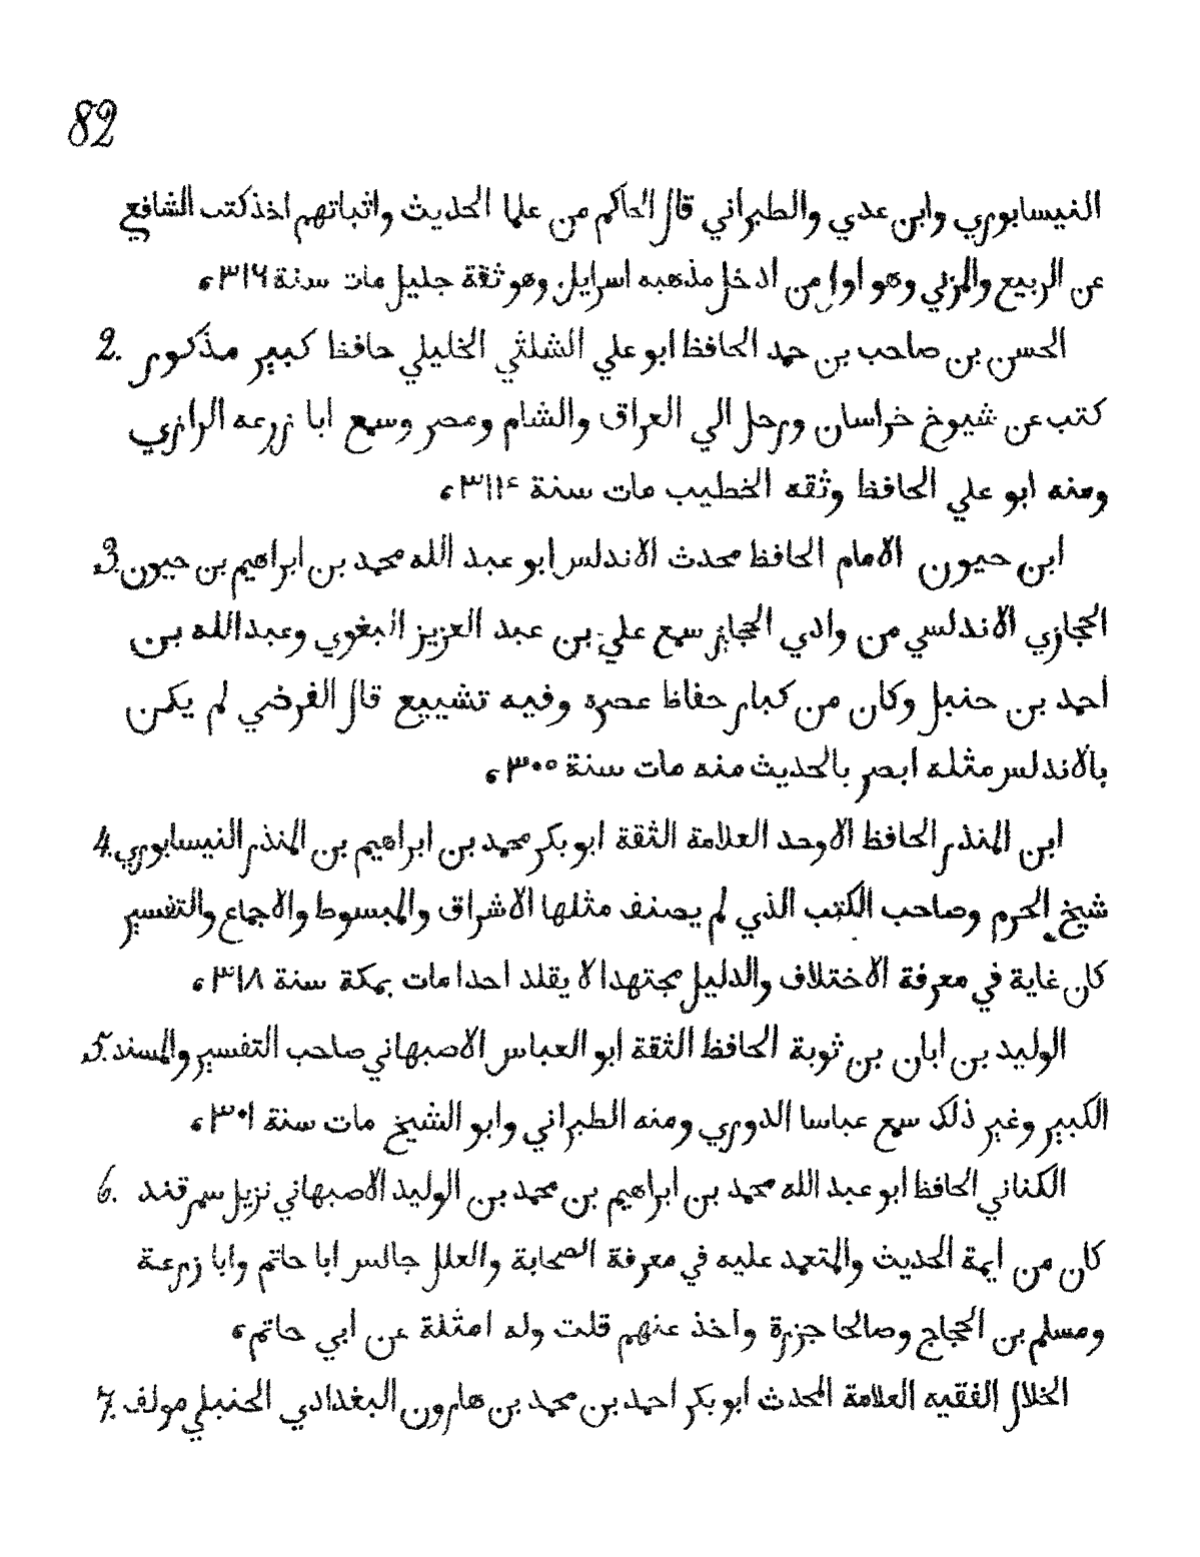 82
النيسابوري وابن عدي والطبراني قال الحاكم من علما الحديث واثباتهم اخذ كتب الشافع
عن الربيع والمزني وهو اول من ادخل مذهبه اسرايل وهو ثقة جليل مات سنة ٣١٦ء
2. الحسن بن صاحب بن حمد الحافظ ابو علي الشلثي الخليلي حافظ كبير مذكور
كتب عن شيوخ خراسان ورحل الي العراق والشام ومصر وسمع ابا زرعه الرازي
ومنه ابو علي الحافظ وثقه الخطيب مات سنة ٣١١٤ء
3. ابن حيون الامام الحافظ محدث الاندلس ابو عبد الله محمد بن ابراهيم بن حيون
الحجازي الاندلسي من وادي الحجاز سمع علي بن عبد العزيز البغوي وعبد الله بن
احمد بن حنبل وكان من كبار حفاظ عصره وفيه تشييع قال الفرضي لم يكن
بالاندلس مثله ابصر بالحديث منه مات سنة ٣٠٥ء
4. ابن المنذر الحافظ الاوحد العلامة الثقة ابو بكر محمد بن ابراهيم بن المنذر النيسابوري
شيخ الحرم وصاحب الكتب الذي لم يصنف مثلها الاشراق والمبسوط والاجماع والتفسير
كان غاية في معرفة الاختلاف والدليل مجتهدا لا يقلد احدا مات بمكة سنة ٣١٨ء
5. الوليد بن ابان بن ثوبة الحافظ الثقة ابو العباس الاصبهاني صاحب التفسير والمسند
الكبير وغير ذلك سمع عباسا الدوري ومنه الطبراني وابو الشيخ مات سنة ٣٠١ء
6. الكناني الحافظ ابو عبد الله محمد بن ابراهيم بن محمد بن الوليد الاصبهاني نزيل سمرقند
كان من ايمة الحديث والمتعمد عليه في معرفة الصحابة والعلل جالس ابا حاتم وابا زرعة
ومسلم بن الحجاج وصالحا جزرة واخذ عنهم قلت وله امثلة عن ابي حاتم ء
7. الخلال الفقيه العلامة المحدث ابو بكر احمد بن محمد بن هارون البغدادي الحنبلي مولف